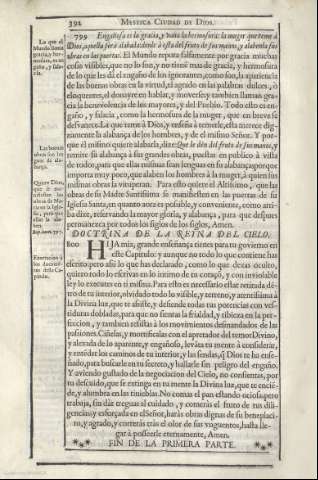 392 MYSTICA CIUDAD DE DIOS.
799 Engañosa es la gracia, y vana la hermosura: la muger que teme à
Dios, aquella serà alabada: dende à esta del fruto de sus manos, y alabenla sus
obras en las puertas. El Mundo reputa falsamente por gracia muchas
cosas visibles, que no lo son, y no tienē mas de gracia, y hermosura
de lo que les dà el engaño de los ignorantes, como son, la aparencia
de las buenas obras en la virtud, el agrado en las palabras dulces, ò
eloquentes, el donayre en hablar, y moverse; y tambien llaman gra-
cia la benevolencia de los mayores, y del Pueblo. Todo esto es en-
gaño, y falacia, como la hermosura de la muger, que en breve se
desvanece. La que teme à Dios, y enseña à temerle, esta merece dig-
namente la alabança de los hombres, y de el mismo Señor. Y por-
que el mismo quiere alabarla, dize: Que le dèn del fruto de sus manos, y
remite su alabança à sus grandes obras, puestas en publico à vista
de todos, para que ellas mismas sean lenguas en su alabança; porque
importa muy poco, que alaben los hombres à la muger, à quien sus
mismas obras la vituperan. Para esto quiere el Altissimo, que las
obras de su Madre Santissima se manifiesten en las puertas de su
Iglesia Santa, en quanto aora es posible, y conveniente, como arri-
ba dixe, reservando la mayor gloria, y alabança, para que despues
permanezca por todos los siglos de los siglos, Amen.
DOCTRINA DE LA REINA DEL CIELO.
800 HIJA mia, grande enseñança tienes para tu govierno en
este Capitulo: y aunque no todo lo que contiene has
escrito; pero assi lo que has declarado, como lo que dexas oculto,
quiero todo lo escrivas en lo intimo de tu coraçō, y con inviolable
ley lo executes en ti misma. Para esto es necessario estàr retirada dē-
tro de tu interior, olvidado todo lo visible, y terreno, y atentissima à
la Divina luz, que te assiste, y defiende todas tus potencias con ves-
tiduras dobladas, para que no sientas la frialdad, y tibieza en la per-
feccion, y tambien resistas à los movimientos desmandados de las
passiones. Ciñelas, y mortificalas con el apretador del temor Divino,
y alexada de lo aparente, y engañoso, levāta tu mente à considerar,
y entēder los caminos de tu interior, y las sendas, q̄ Dios te ha ense-
ñado, para buscarle en tu secreto, y hallarle sin peligro del engaño.
Y aviendo gustado de la negociacion del Cielo, no consientas, por
tu descuido, que se extinga en tu mente la Divina luz, que te encié-
de, y alumbra en las tinieblas. No comas el pan estando ociosa, pero
trabaja, sin dàr treguas al cuidado, y comeràs el fruto de tus dili-
gencias; y esforçada en el Señor, haràs obras dignas de su beneplaci-
to, y agrado, y correràs tràs el olor de sus vnguentos, hasta lle-
gar à posseerle eternamente, Amen.
FIN DE LA PRIMERA PARTE.